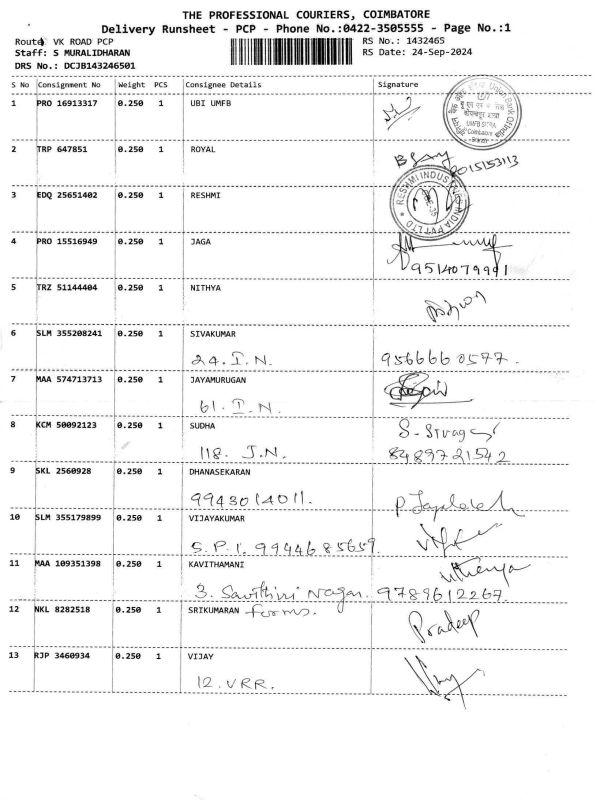 THE PROFESSIONAL COURIERS, COIMBATORE
Delivery Runsheet - PCP - Phone No.:0422-3505555 - Page No.:1
Route VK ROAD PCP
RS No.: 1432465
Staff: S MURALIDHARAN
RS Date: 24-Sep-2024
DRS No.: DCJB143246501
S No Consignment No Weight PCS Consignee Details Signature
1 PRO 16913317 0.250 1 UBI UMFB
Union Bank Of India
UMFB SITRA
Coimbatore
Branch
2 TRP 647851 0.250 1 ROYAL
9015153113
3 EDQ 25651402 0.250 1 RESHMI
RESHMI INDUSTRIES INDIA PVT LTD
4 PRO 15516949 0.250 1 JAGA
9514079991
5 TRZ 51144404 0.250 1 NITHYA
6 SLM 355208241 0.250 1 SIVAKUMAR
24. I.N. 9566660577.
7 MAA 574713713 0.250 1 JAYAMURUGAN
61. I.N.
8 KCM 50092123 0.250 1 SUDHA
118. I.N. 8489721542
9 SKL 2560928 0.250 1 DHANASEKARAN
9943014011.
10 SLM 355179899 0.250 1 VIJAYAKUMAR
S.P.I. 9944685659.
11 MAA 109351398 0.250 1 KAVITHAMANI
3. Savithiri Nagar. 9789612267.
12 NKL 8282518 0.250 1 SRIKUMARAN forms. Pradeep
13 RJP 3460934 0.250 1 VIJAY
12. VRR.